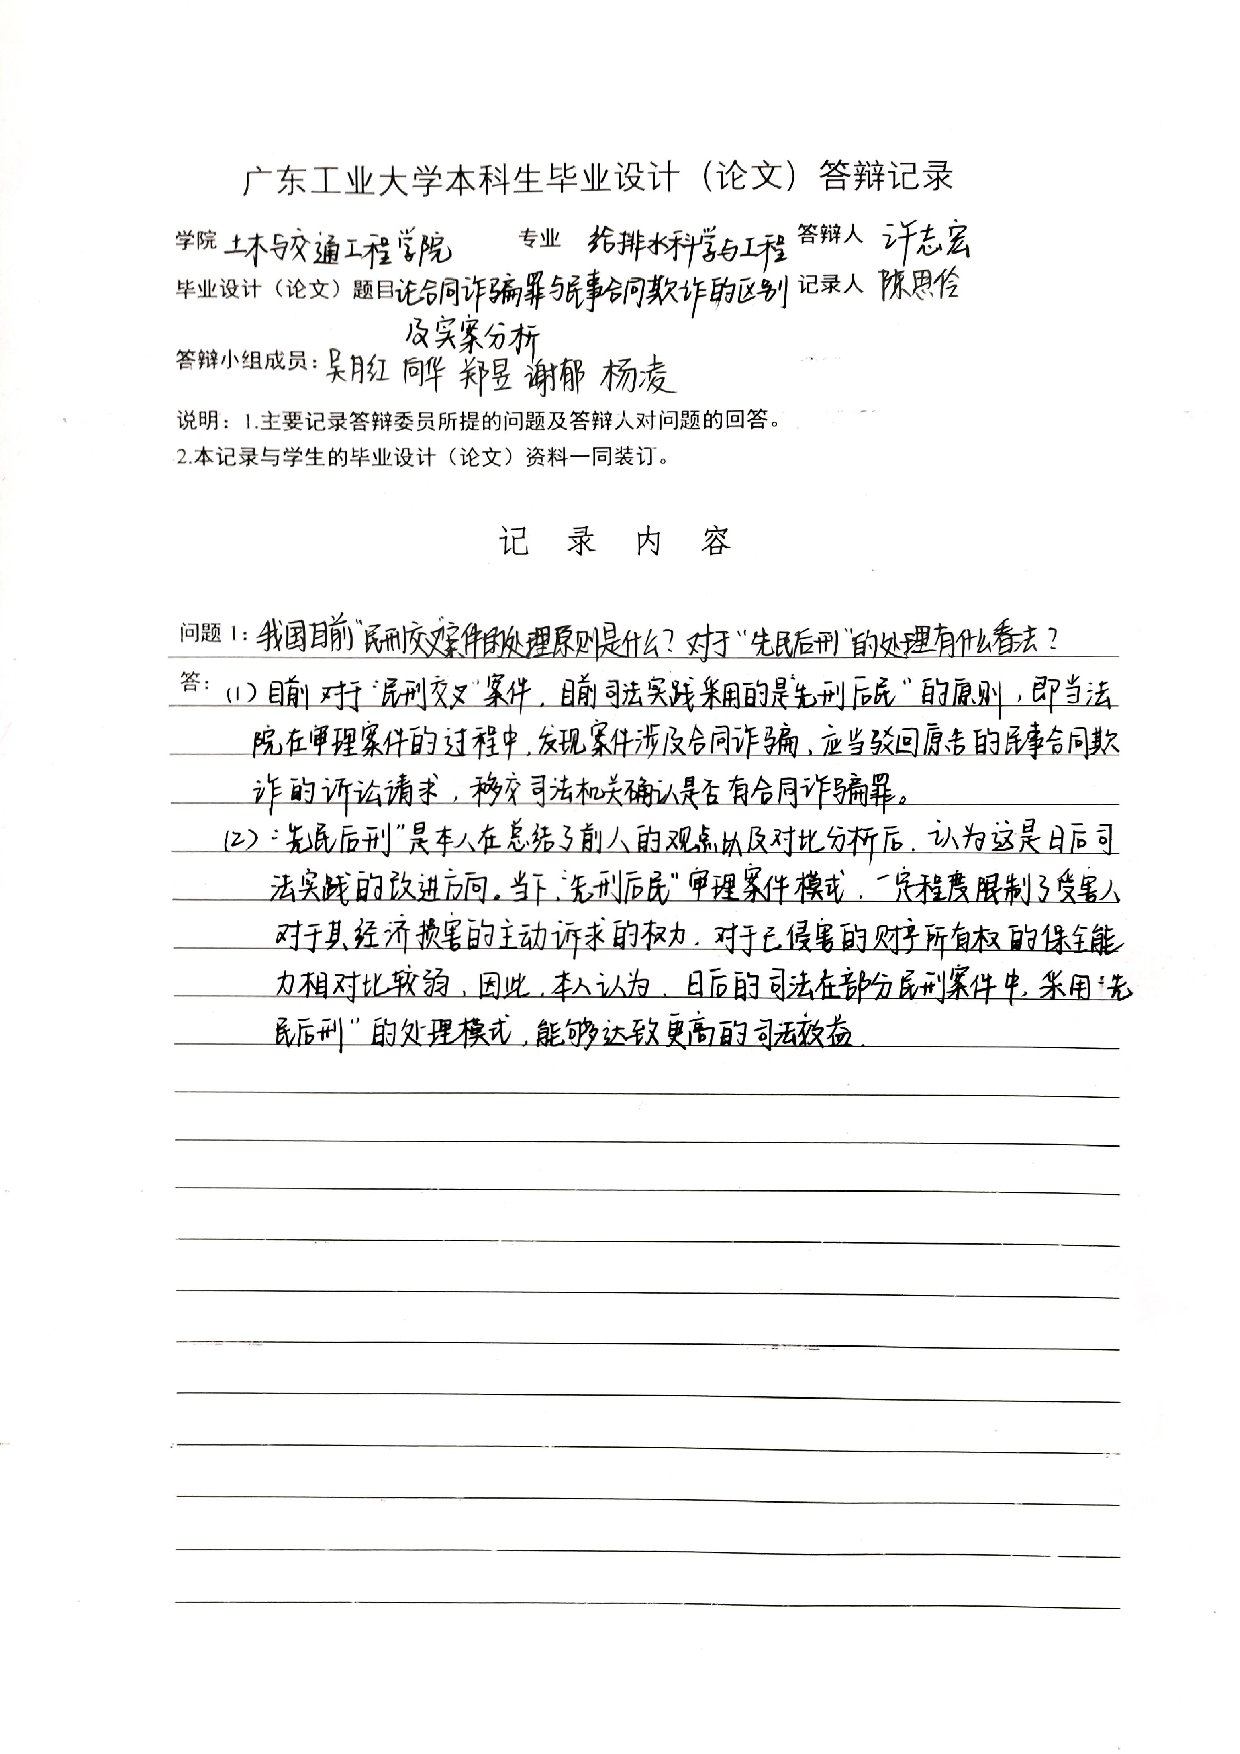 广东工业大学本科生毕业设计（论文）答辩记录
学院 土木与交通工程学院 专业 给排水科学与工程 答辩人 许志宏
毕业设计（论文）题目 论合同诈骗罪与民事合同欺诈的区别 记录人 陈思伶
及实案分析
答辩小组成员：吴月红 向华 郑昱 谢郁 杨凌
说明：1.主要记录答辩委员所提的问题及答辩人对问题的回答。
2.本记录与学生的毕业设计（论文）资料一同装订。
记 录 内 容
问题1：我国目前“民刑交叉”案件的处理原则是什么？对于“先民后刑”的处理有什么看法？
答：(1)目前对于“民刑交叉”案件，目前司法实践采用的是“先刑后民”的原则，即当法
院在审理案件的过程中，发现案件涉及合同诈骗，应当驳回原告的民事合同欺
诈的诉讼请求，移交司法机关确认是否有合同诈骗罪。
(2)“先民后刑”是本人在总结了前人的观点以及对比分析后，认为这是日后司
法实践的改进方向。当下，“先刑后民”审理案件模式，一定程度限制了受害人
对于其经济损害的主动诉求的权力，对于已侵害的财产所有权的保全能
力相对比较弱，因此，本人认为，日后的司法在部分民刑案件中，采用“先
民后刑”的处理模式，能够达致更高的司法效益.